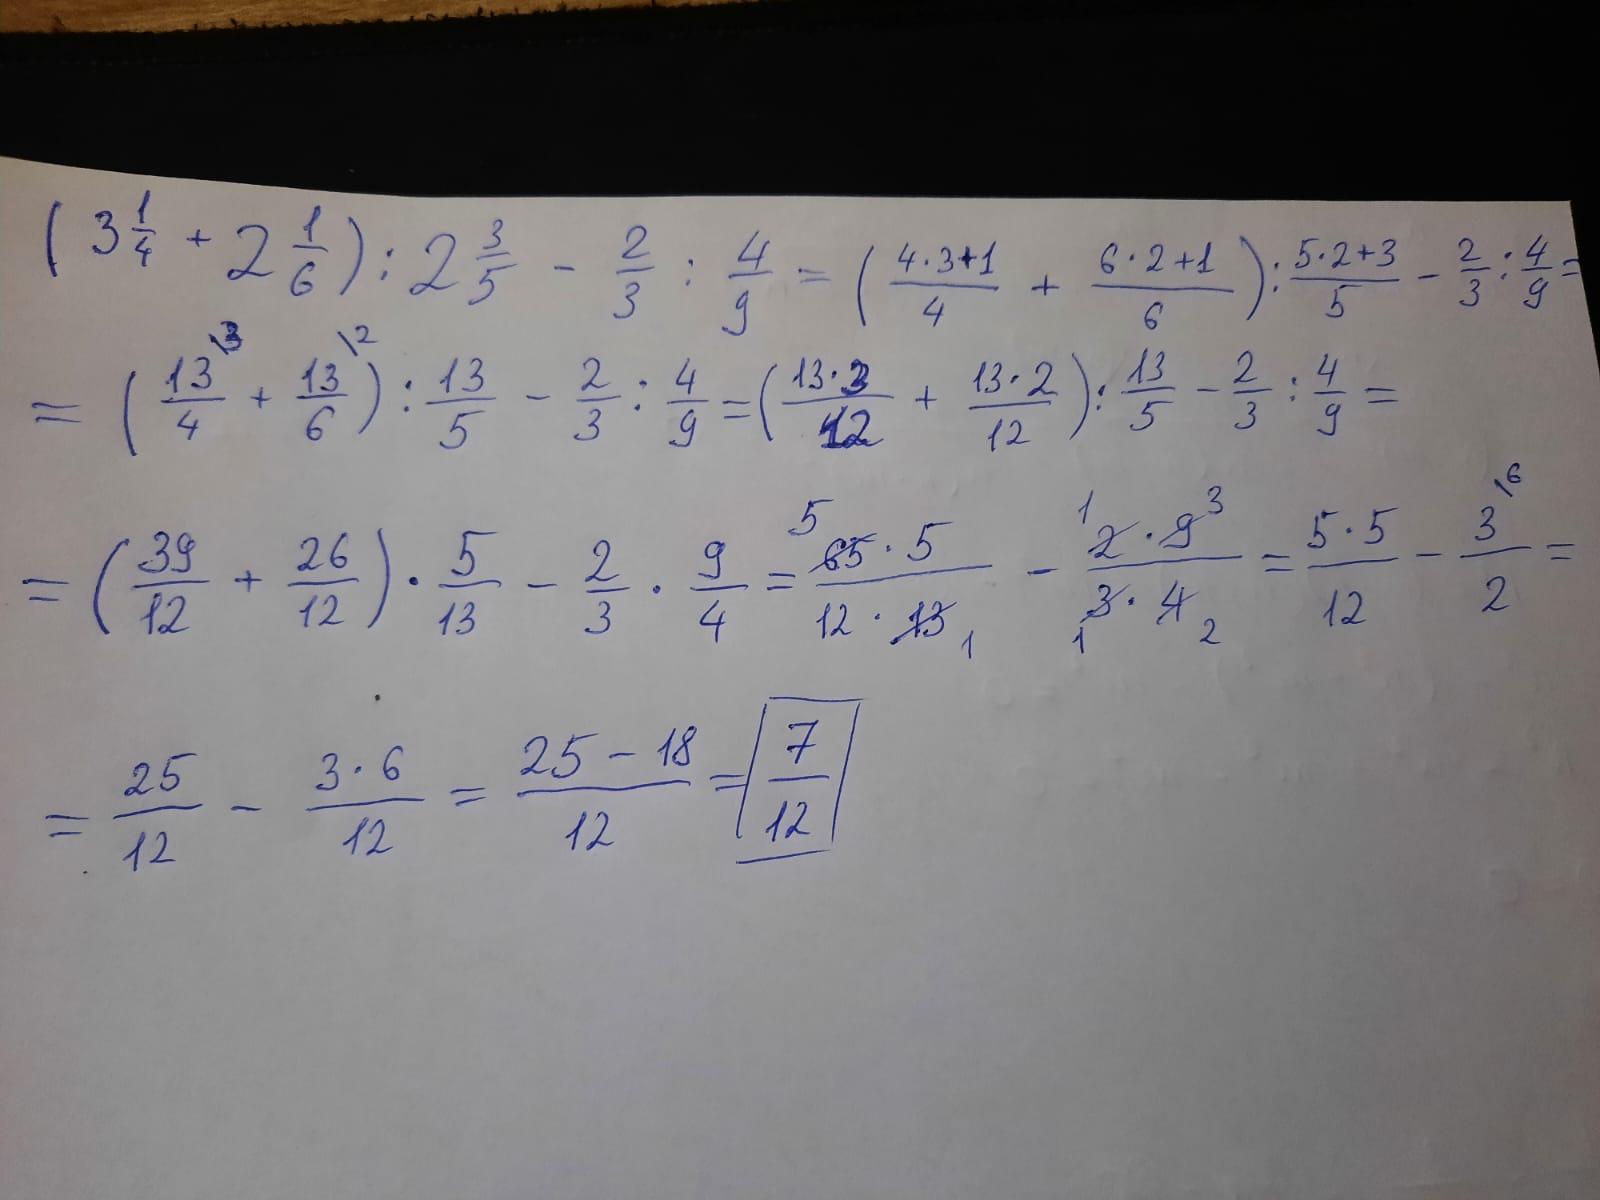 (3 1/4 + 2 1/6) : 2 3/5 - 2/3 : 4/9 = ((4·3+1)/4 + (6·2+1)/6) : (5·2+3)/5 - 2/3 : 4/9 =
= (13\3/4 + 13\2/6) : 13/5 - 2/3 : 4/9 = ((13·3)/12 + (13·2)/12) : 13/5 - 2/3 : 4/9 =
= (39/12 + 26/12) · 5/13 - 2/3 · 9/4 = (5 65·5)/(12·13 1) - (1 2·9 3)/(1 3·4 2) = (5·5)/12 - 3\6/2 =
= 25/12 - (3·6)/12 = (25-18)/12 = 7/12